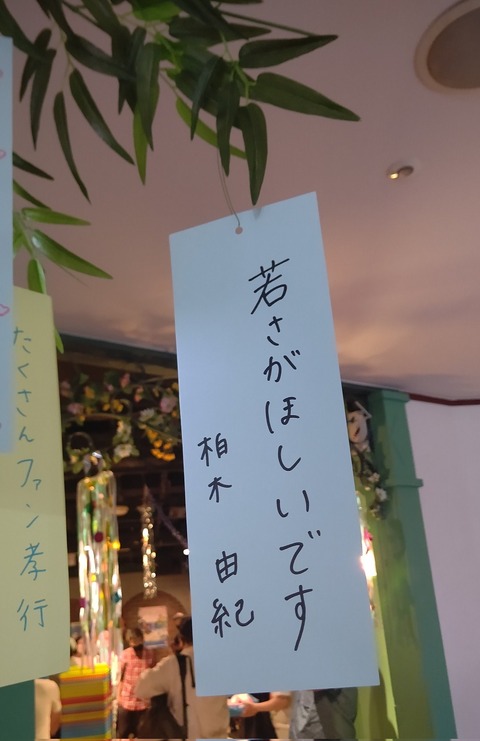 若さがほしいです
柏木 由紀
たくさんファン孝行